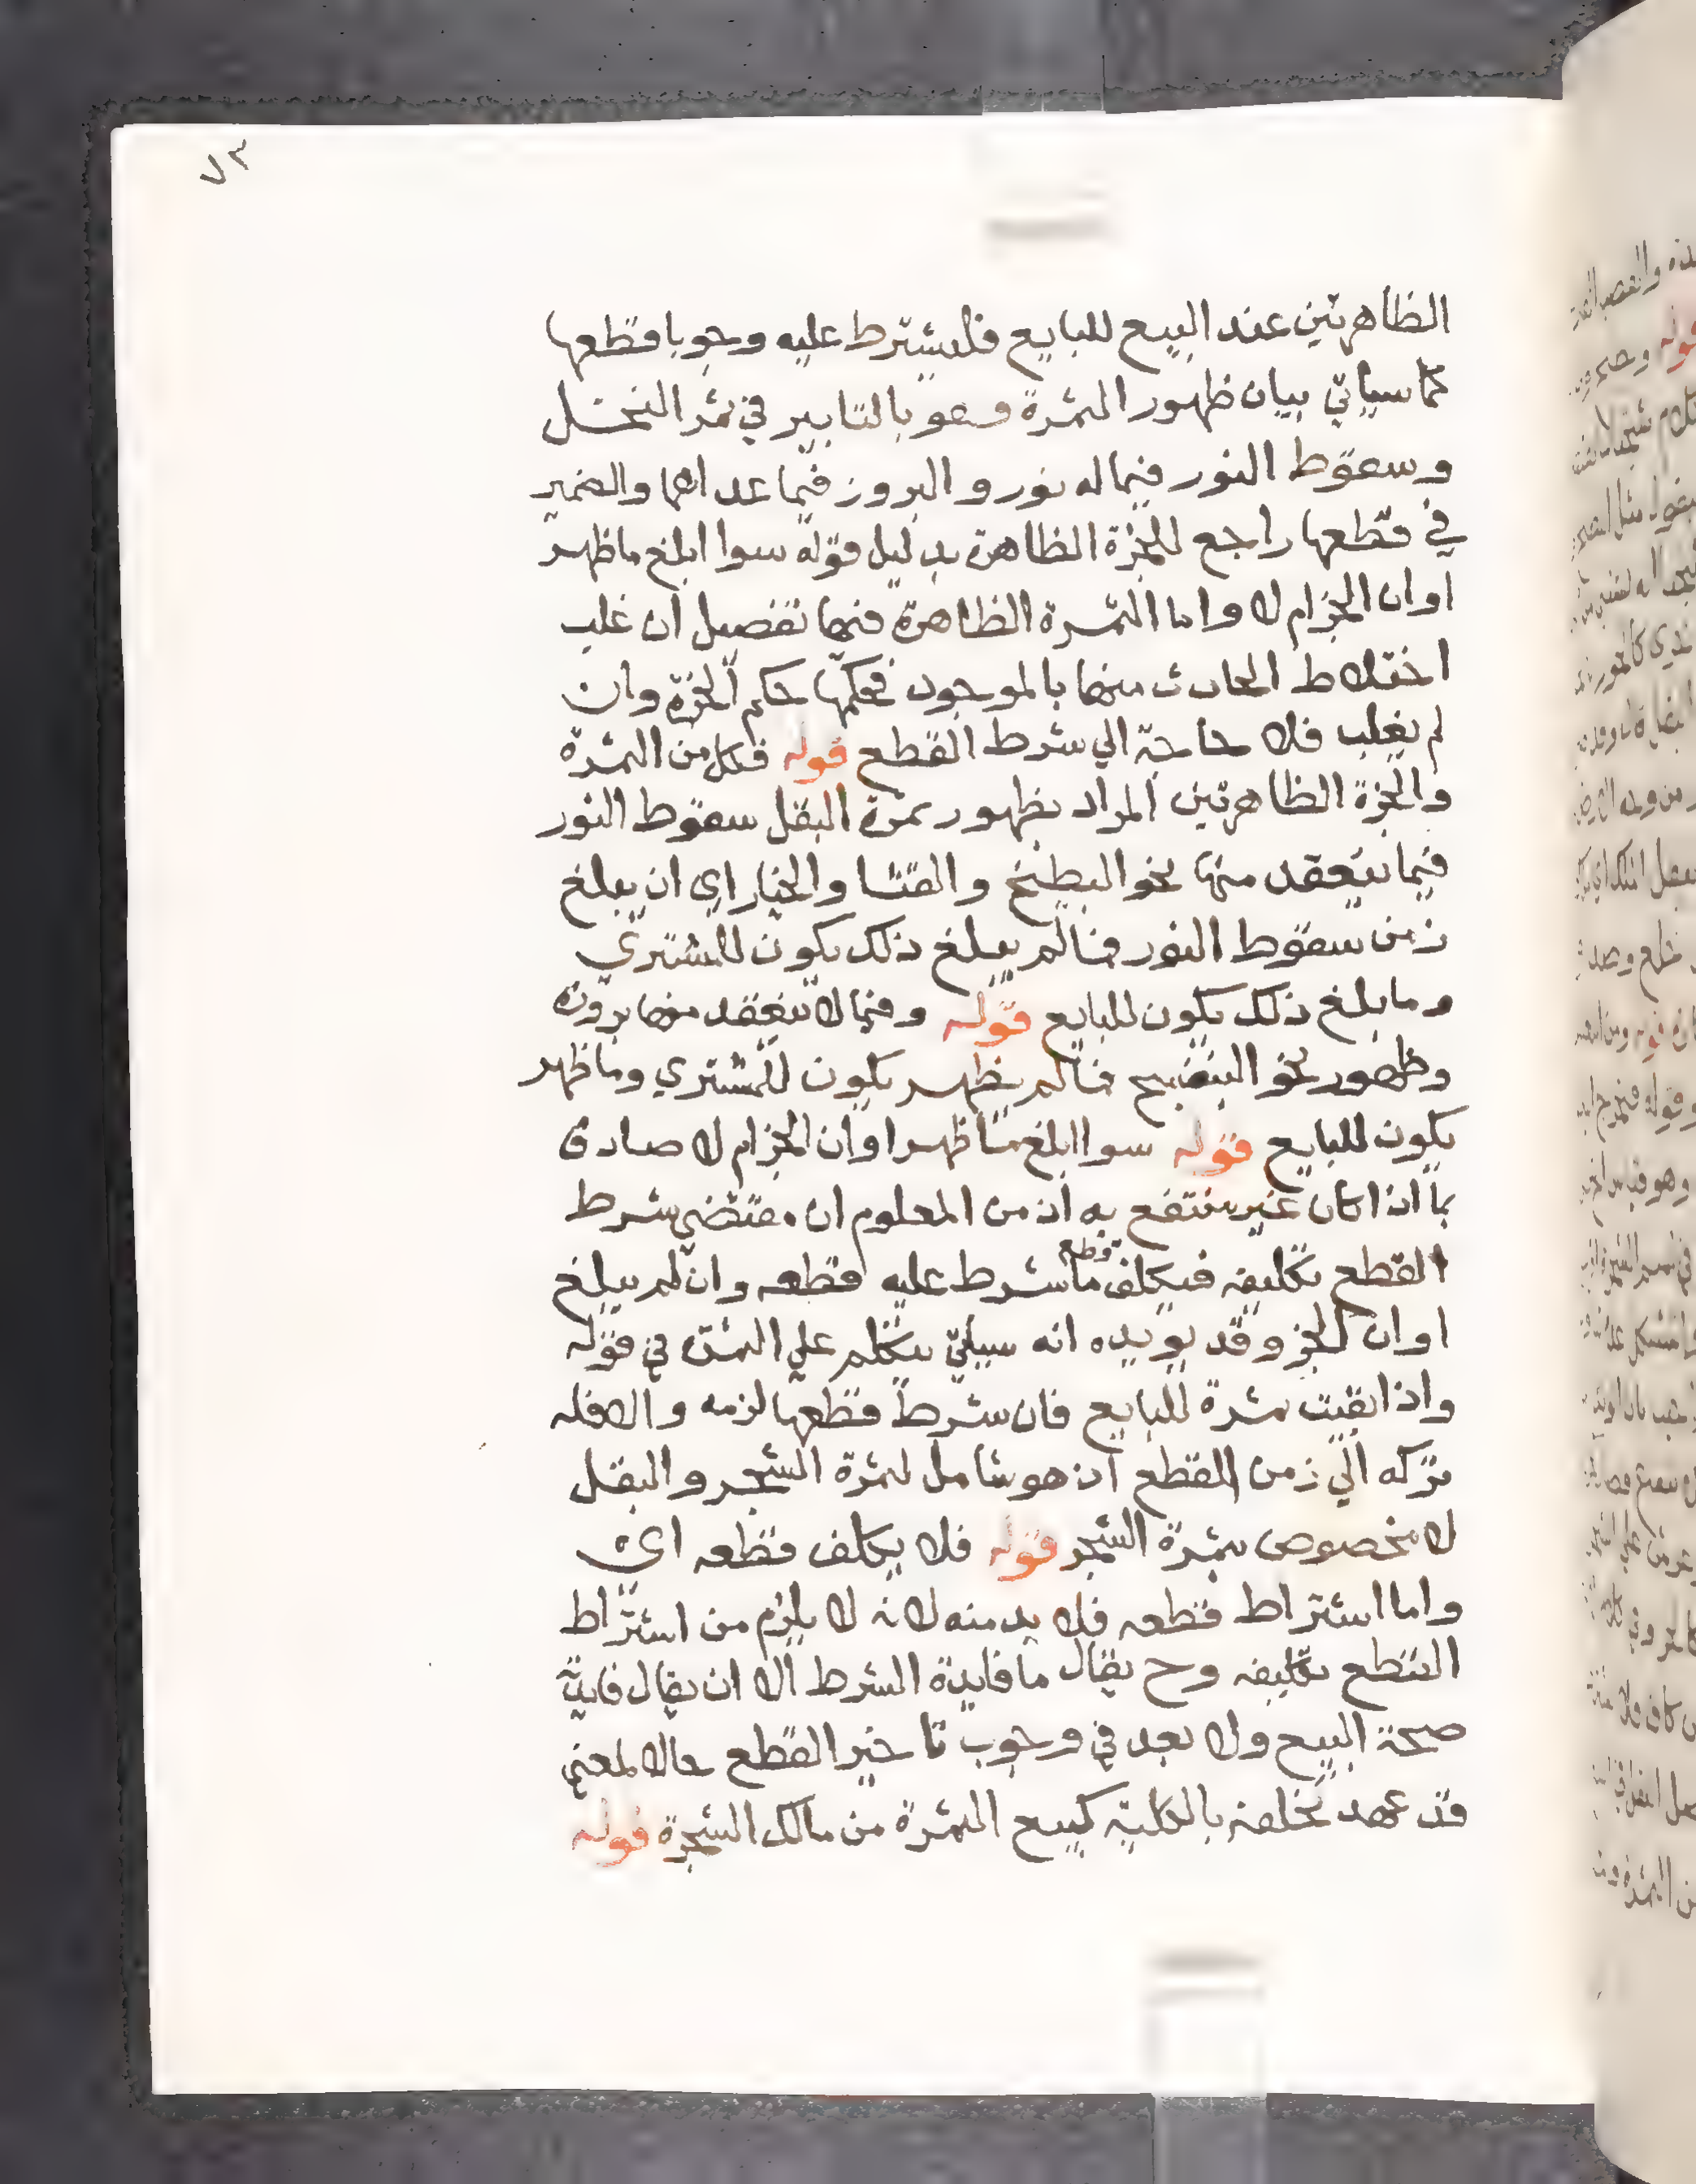 ٧٣
الظاهرتين عند البيع للبايع فليشترط عليه وجوبا قطعها
كما سياتي بيان ظهور الثمرة وهو بالتابير في ثمر النخل
وسقوط النور فيما له نور والبروز فيما عداهما والضمير
في قطعها راجع للجزة الظاهرة بدليل قوله سوا ابلغ ما ظهر
اوان الجز ام لا واما الثمرة الظاهرة ففيها تفصيل ان غلب
اختلاط الحادث منها بالموجود فحكمها حكم الجزة وان
لم يغلب فلا حاجة الي شرط القطع قوله فكل من الثمرة
والجزة الظاهرتين المراد بظهور ثمرة البقل سقوط النور
فيما ينعقد منها نحو البطيخ والقثا والخيار اي ان يبلغ
زمن سقوط النور فما لم يبلغ ذلك يكون للمشتري
وما بلغ ذلك يكون للبايع قوله وفيما لا ينعقد منها بروزه
وظهور نحو البنفسج فما لم يظهر يكون للمشتري وما ظهر
يكون للبايع قوله سوا ابلغ ما ظهر اوان الجز ام لا صادق
بما اذا كان غير منتفع به اذ من المعلوم ان مقتضي شرط
القطع تكليفه فيكلف قطع ما شرط عليه قطعه وان لم يبلغ
اوان الجز وقد يويده انه سياتي يتكلم علي الثمرة في قوله
واذا بقيت ثمرة للبايع فان شرط قطعها لزمه والا فله
تركه الي زمن القطع اذ هو شامل لثمرة الشجر والبقل
لا مخصوص بثمرة الشجر قوله فلا يكلف قطعه اي
واما اشتراط قطعه فلا بد منه لانه لا يلزم من اشتراط
القطع تكليفه وح يقال ما فايدة الشرط الا ان يقال فايدته
صحة البيع ولا بعد في وجوب تاخير القطع حالا لمعني
قد عهد تخلفه بالكلية كبيع الثمرة من مالك الشجرة قوله